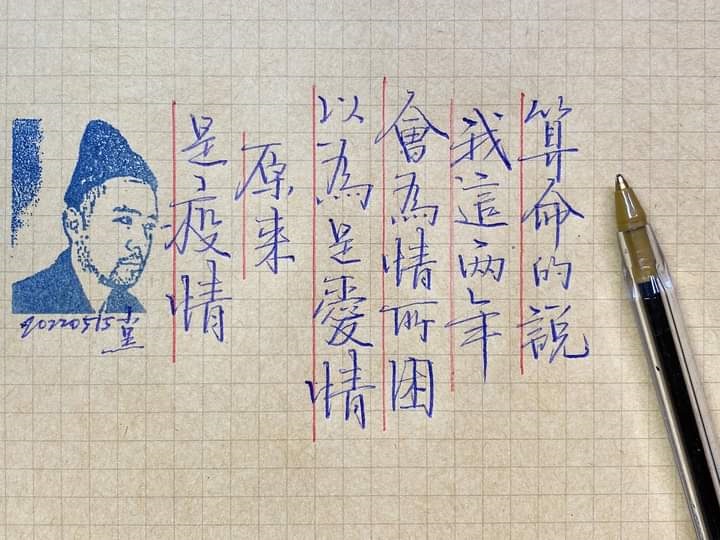 算命的說
我這两年
會為情所困
以為是愛情
原來
是疫情
20220515